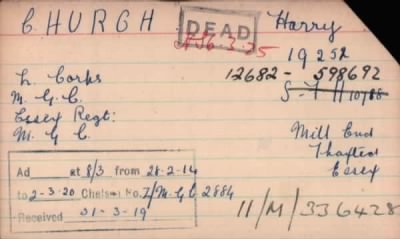 CHURCH Harry
DEAD
A36.3.25
19252
L. Corps 12682 - 598692
M. G. C. S-F H 10788
Essex Regt:
M G C
Mill End
Thaxted
Essex
Ad at 8/3 from 28-2-14
to 2-3-20 Chelsea No. Z/MGC 2884
Received 31-3-19
11/M/336428